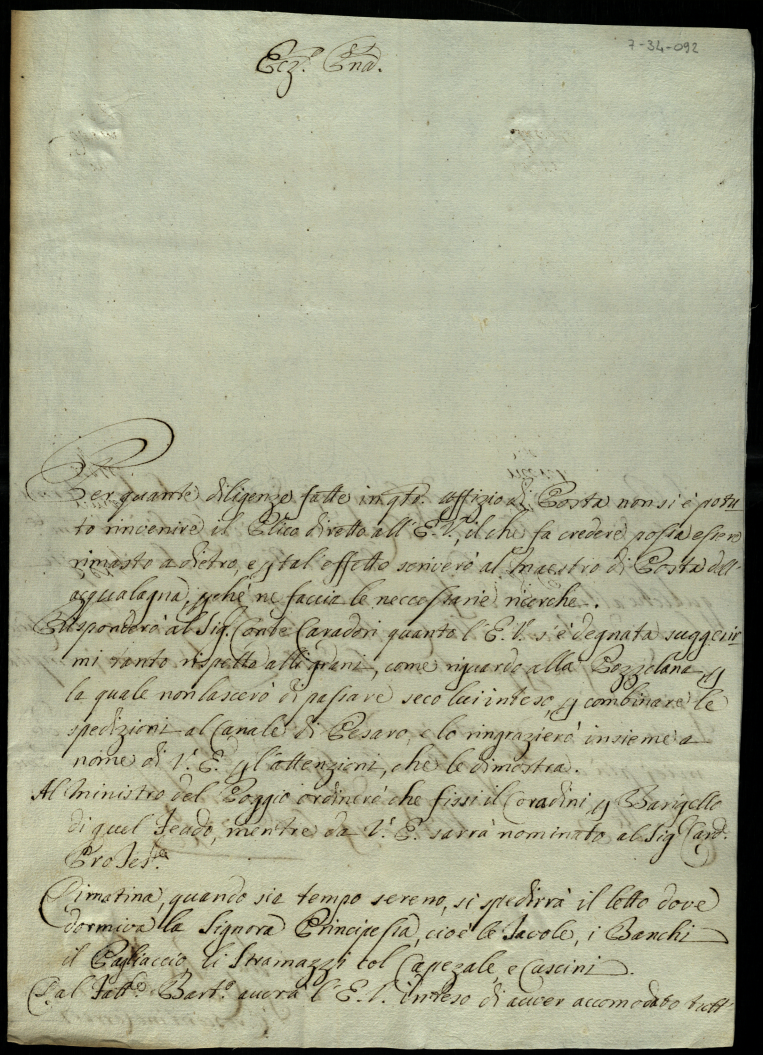 7-34-092
Ecz.ª Pnã.
Per quante diligenze fatte in qto. uffizio di Posta non si è potu
to rinvenire il Plico diretto all'E.V., il che fa credere possa essere
rimasto a dietro, e p tal effetto scriverò al Maestro di Posta dell'
acqualagna, pche ne faccia le neccessarie ricerche.
Risponderò al Sig. Conte Caradori quanto l'E.V. s'è degnata suggerir
mi tanto rispetto alli grani, come riguardo alla Pozzolana p
la quale non lascerò di passare seco lui inteso, p combinare le
spedizioni al Canale di Pesaro, e lo ringrazierò insieme a
nome di V.E. p l'attenzioni, che le dimostra.
Al Ministro del Poggio ordinerò che fissi il Coradini p Barigello
di quel Feudo, mentre da V.E. sarrà nominato al Sig Card.
Pro
Dimatina, quando sia tempo sereno, si spedirrà il letto dove
dormiva la Signora Principessa, cioè le Tavole, i Banchi
il Pagliaccio, li Stramazzi col Capezale, e Cuscini.
Dal Fatt.e Bart.o averà l'E.V. inteso di aver accomodato tutt'